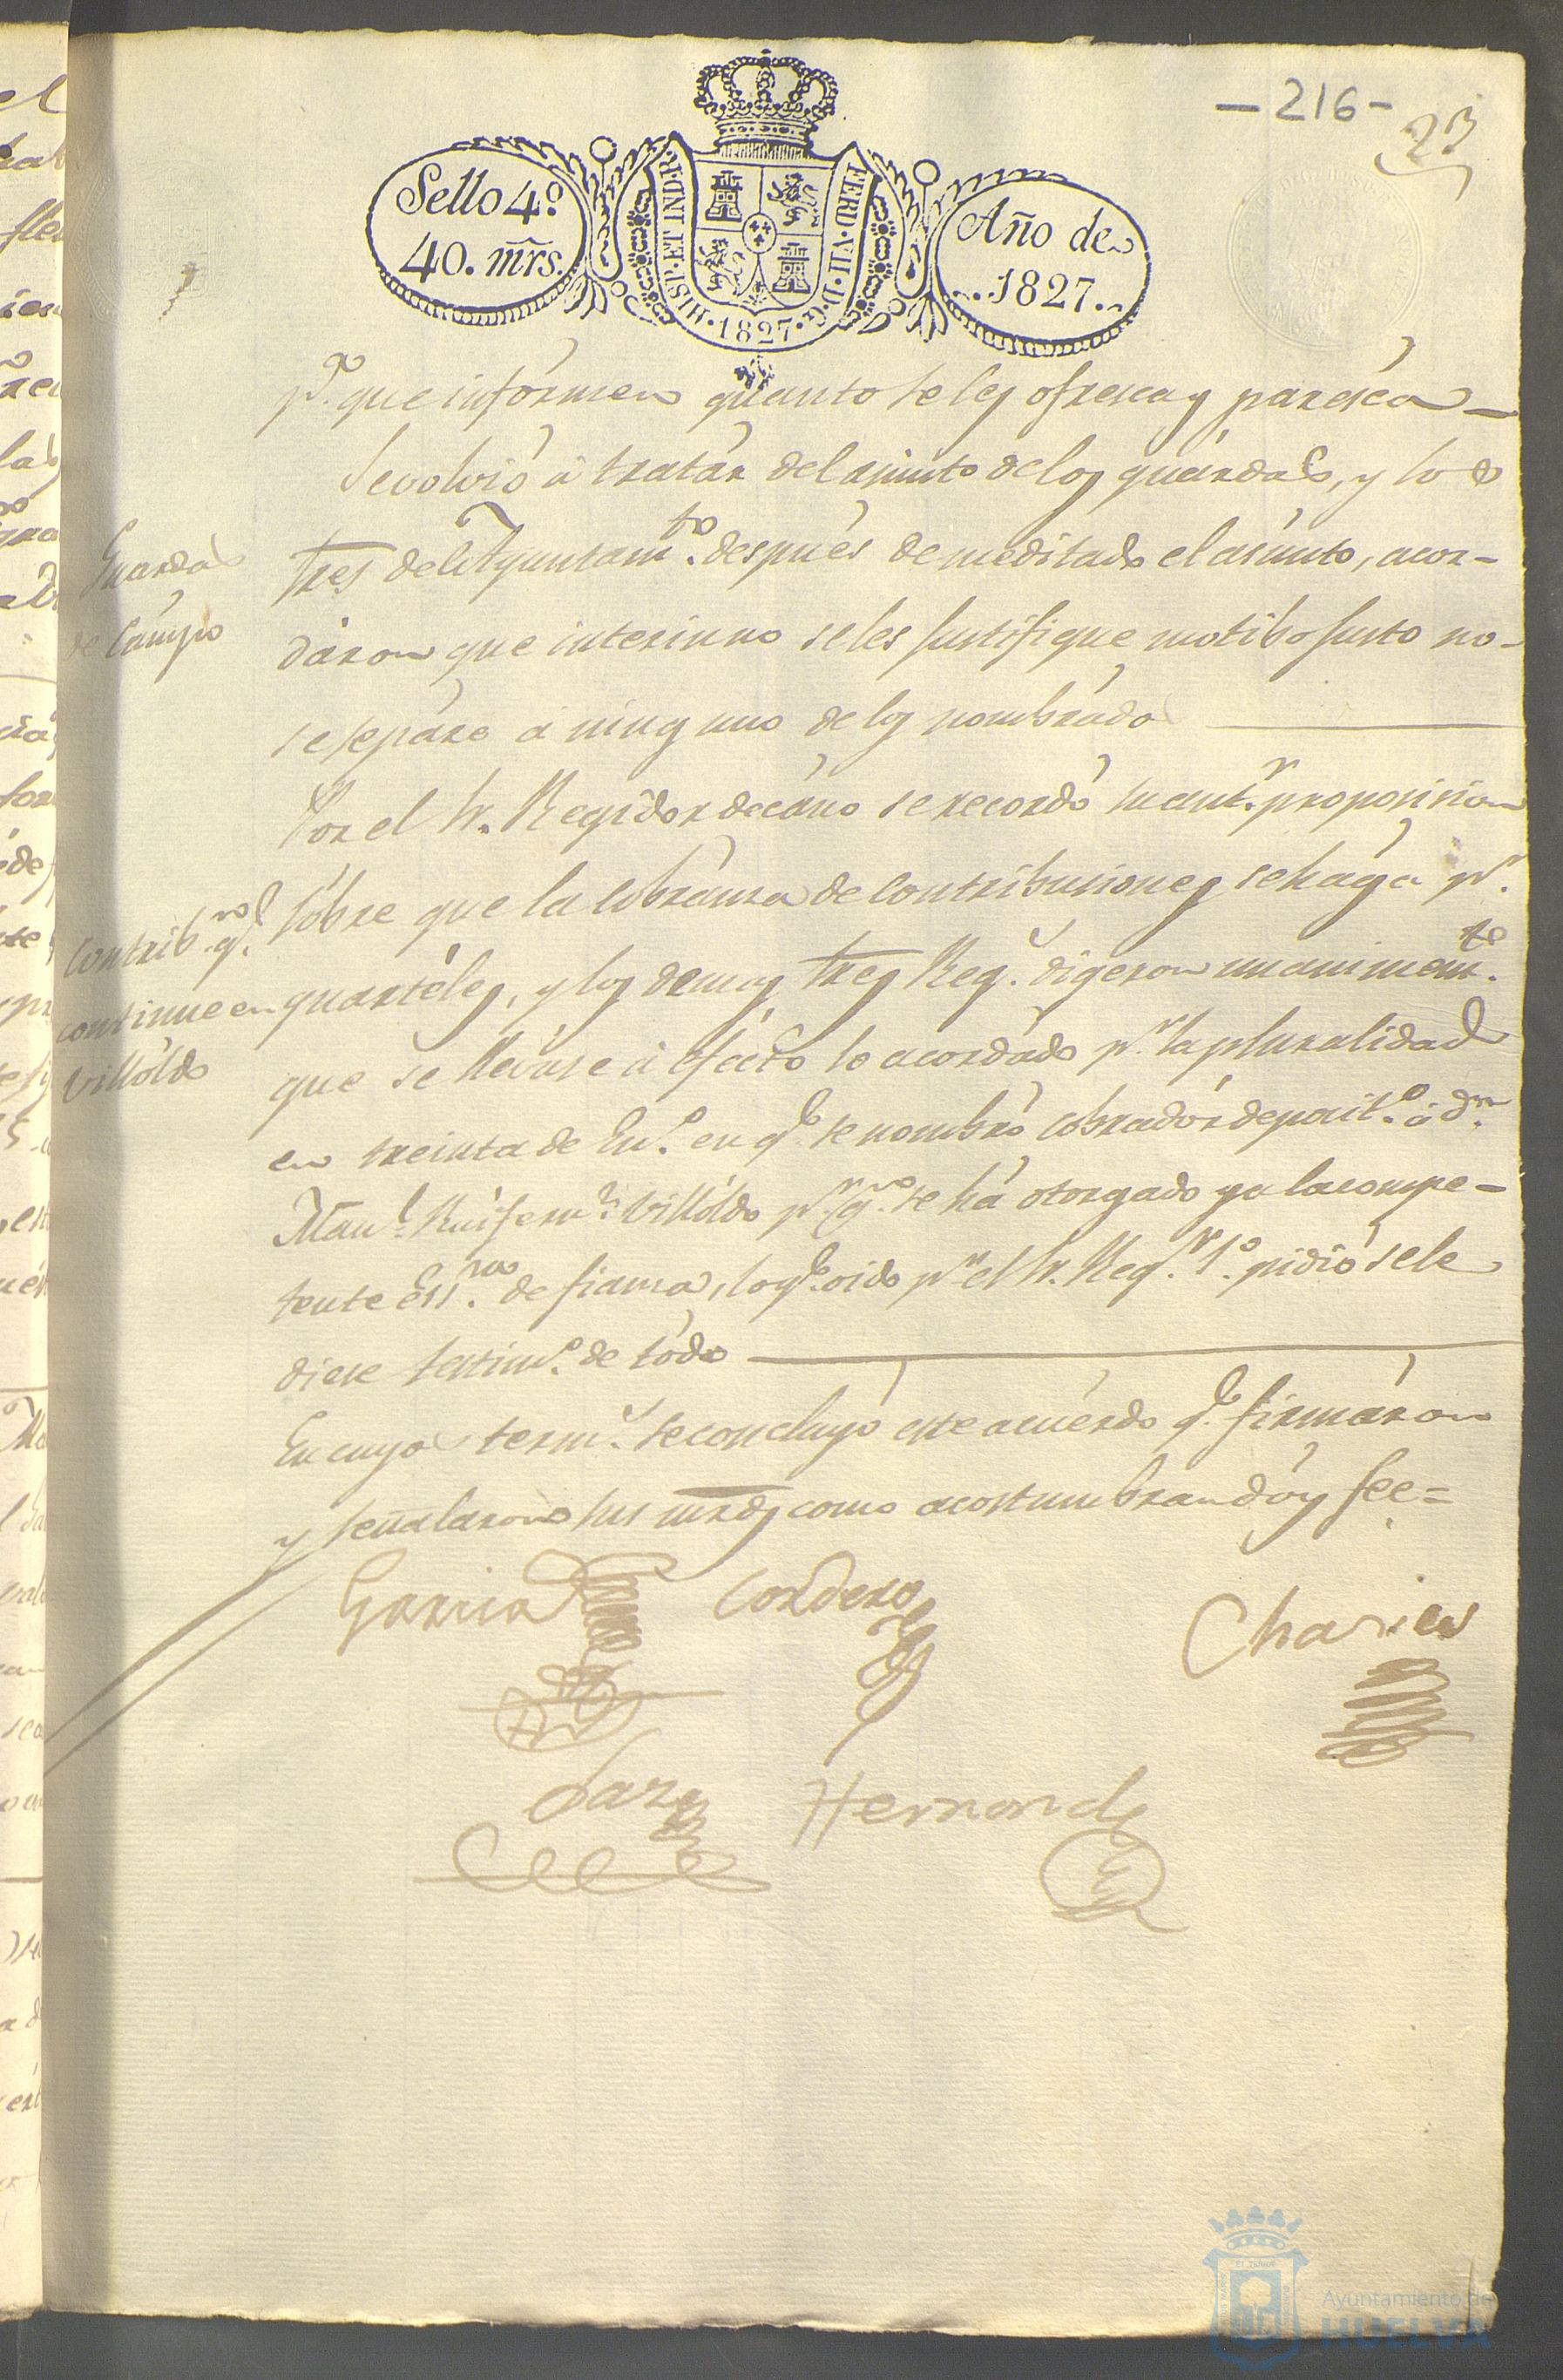 - 216 -
23
Sello 4º.
40. mr̃s.
HISP. ET IND. R.
FERD. VII. D. G.
1827
Año de
1827.
pª. que informen quanto se les ofresca y paresca
Se volvió á tratar del asunto de los guardas, y los
Guardas
de Campo
tres del Ayuntamto. despues de meditado el asunto, acor-
daron que interin no se les justifique motibo justo no
se separe á ninguno de los nombrados
Por el Sr. Regidor decáno se recordó su antr. proposision
sóbre que la cobransa de contribusiones se hága pr.
Contribns. qe.
continue en
Villóldo
quartéles, y los demas tres Regs. digeron unanimemte.
que se lleváse á efécto lo acordado pr. la pluralidad
en treinta de Enº. en qe. se nombró cobradór depositº. á Dn.
Manl. Ruifernz. Villóldo pr. qn. se há otorgado ya la compe-
tente Essra. de fiansa, lo qe. oido pr. el Sr. Regr. 1º. pidió se le
diese testimº. de tódo
En cuyos terms. se concluyó este acuérdo qe. firmáron
y señalaron sus mrds como acostumbran dóy fée =
Garcia
Cordero
Charies
Lazo
Hernands
Ayuntamiento de
HUELVA